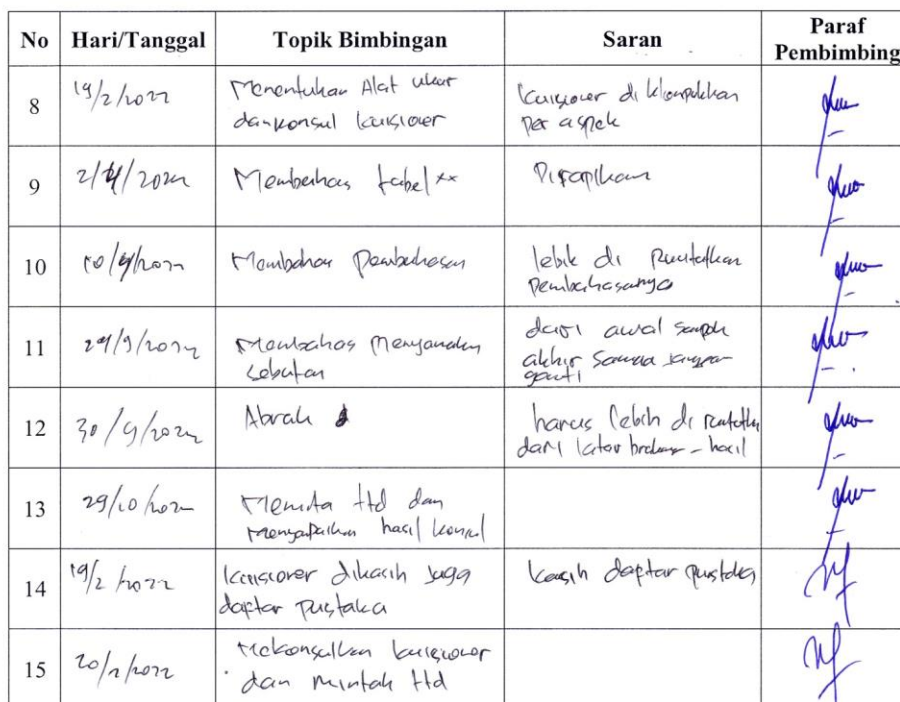 No Hari/Tanggal Topik Bimbingan Saran Paraf
Pembimbing
8 19/2/2022 Menentukan Alat ukur kuisioner di klompokkan
dan konsul kuisioner per aspek
9 2/ /2022 Membahas tabel Dirapikan
10 10/9/2022 Membahas pembahasan lebih di runtutkan
pembahasannya
11 29/9/2022 Membahas Menyamakan dari awal sampai
sebutan akhir semua jangan
ganti
12 30/9/2022 Abrak harus lebih di runtutkan
dari latar - hasil
13 29/10/2022 Meminta ttd dan
menyampaikan hasil konsul
14 19/2/2022 kuisioner dikasih juga kasih daftar pustaka
daftar pustaka
15 20/2/2022 Mekonsulkan kuisioner
dan mintak ttd